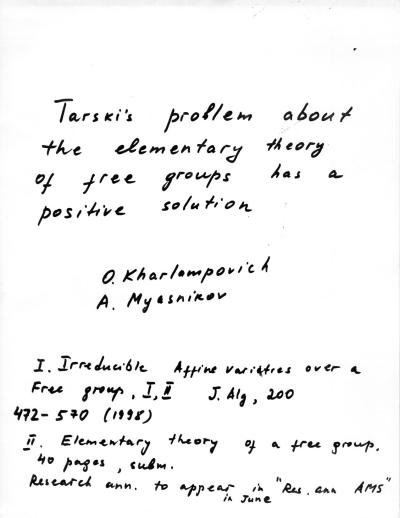 Tarski's problem about
the elementary theory
of free groups has a
positive solution
O. Kharlampovich
A. Myasnikov
I. Irreducible Affine varieties over a
Free group, I, II J. Alg, 200
472-570 (1998)
II. Elementary theory of a free group.
40 pages, subm.
Research ann. to appear in "Res. ann AMS"
in June